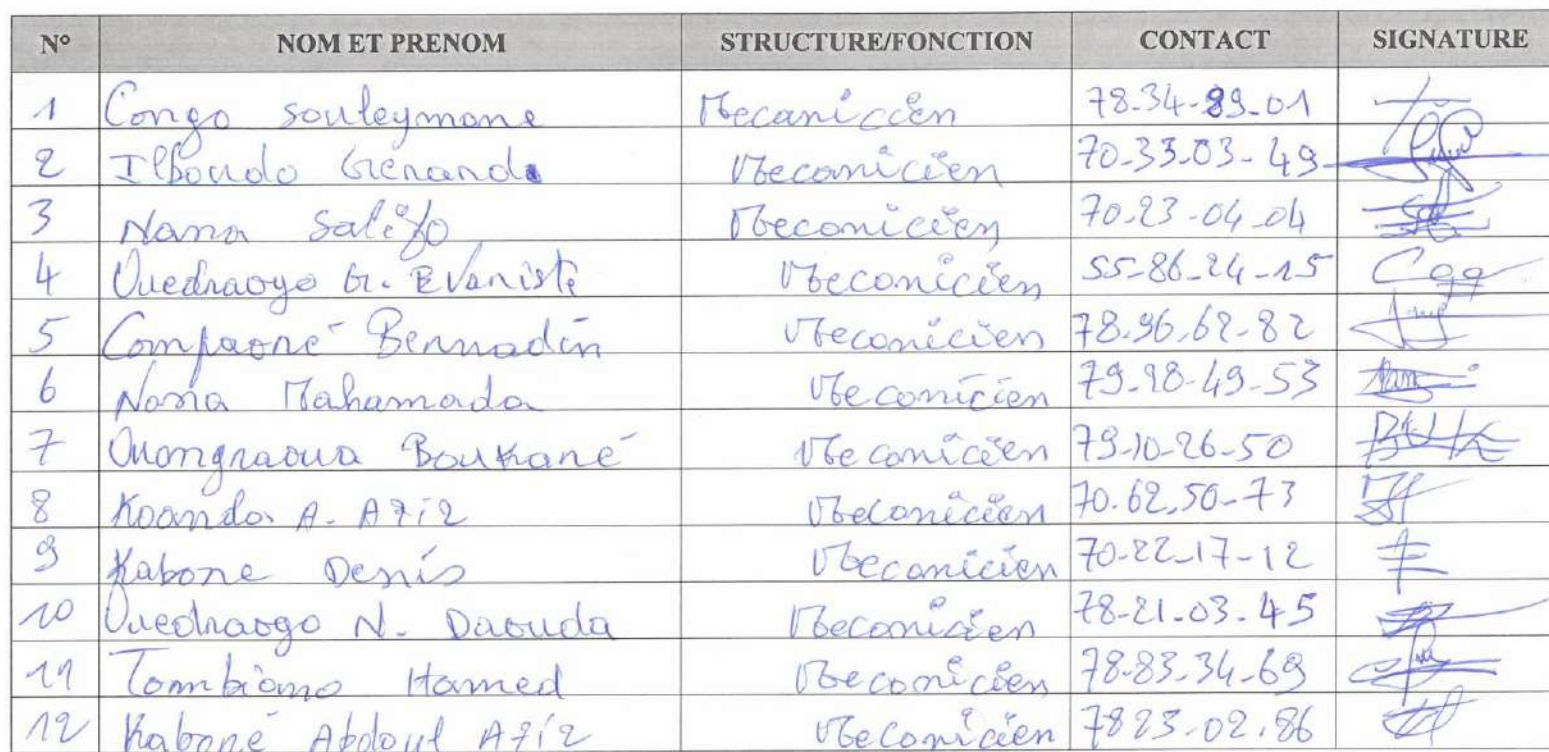 N° NOM ET PRENOM STRUCTURE/FONCTION CONTACT SIGNATURE
1 Congo Souleymane Mecaniccien 78-34-89-01
2 Ilboudo Génard Mecanicien 70-33-03-49
3 Nana Salifo Mecanicien 70-23-04-04
4 Ouedraogo G. Evariste Mecanicien 55-86-24-15
5 Compaoré Bernadin Mecanicien 78-96.62-82
6 Nana Mahamada Mecanicien 79-98-49-53
7 Ouongraoua Boukaré Mecanicien 79-10-26-50
8 Koanda A. Aziz Mecanicien 70.62.50-73
9 Kabore Denis Mecanicien 70-22-17-12
10 Ouedraogo N. Daouda Mecanicien 78-21.03-45
11 Tombiano Hamed Mecanicien 78-83.34-69
12 Kaboré Abdoul Aziz Mecanicien 7823-02.86